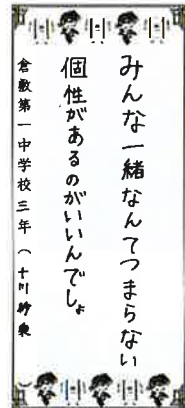 みんな一緒なんてつまらない
個性があるのがいいんでしょ
倉敷第一中学校三年(十川紗東)